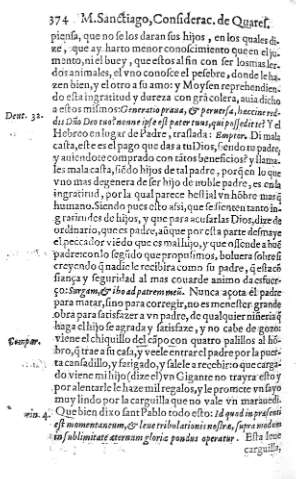 374 M. Sanctiago, Considerac. de Quares.
piensa, que no se los daran sus hijos, en los quales di-
ze, que ay harto menor conoscimiento que en el ju-
mento, ni el buey, que estos al fin con ser los mas ler-
dos animales, el vno conosce el pesebre, donde le ha-
zen bien, y el otro a su amo: y Moysen reprehendien-
do esta ingratitud y dureza con grã colera, auia dicho
Deut. 32.
a estos mismos: Generatio praua, & peruersa, hæccine red-
dis Dño Deo tuo? nonne ipse est pater tuus, qui possedit te? Y el
Hebreo en lugar de Padre, traslada: Emptor. Di mala
casta, este es el pago que das a tu Dios, siendo tu padre,
y auiendote comprado con tãtos beneficios? y llama-
les mala casta, siẽdo hijos de tal padre, porq̃ en lo que
vno mas degenera de ser hijo de noble padre, es en la
ingratitud, por la qual parece bestial vn hõbre mas q̃
humano. Siendo pues esto assi, que se siente tanto in-
gratitudes de hijos, y que para acusarlas Dios, dize de
ordinario, que es padre, aũque por esta parte desmaye
el peccador viẽdo que es mal hijo, y que offende a buẽ
padre: con lo segũdo que propusimos, boluera sobre si
creyendo q̃ nadie le recibira como su padre, q̃ esta cõ
fiança y seguridad al mas couarde animo da esfuer-
ço: Surgam, & ibo ad patrem meũ. Nunca açota el padre
para matar, sino para corregir, no es menester grande
obra para satisfazer a vn padre, de qualquier niñeria q̃
haga el hijo se agrada y satisfaze, y no cabe de gozo:
Compar.
viene el chiquillo del cãpo con quatro palillos al hõ-
bro, q̃ trae a su casa, y veele entrar el padre por la puer-
ta cansadillo, y fatigado, y salele a recebir: o que carga-
do viene mi hijo (dize el) vn Gigante no trayra esto y
por alentarle le haze mil regalos, y le promete vn sayo
muy lindo por la carguilla que no vale vn marauedi.
rin. 4.
Que bien dixo sant Pablo todo esto: Id quod in præsenti
est momentaneum, & leue tribulationis nostræ, supra modum
in sublimitate æternam gloriæ pondus operatur. Esta leue
carguilla,